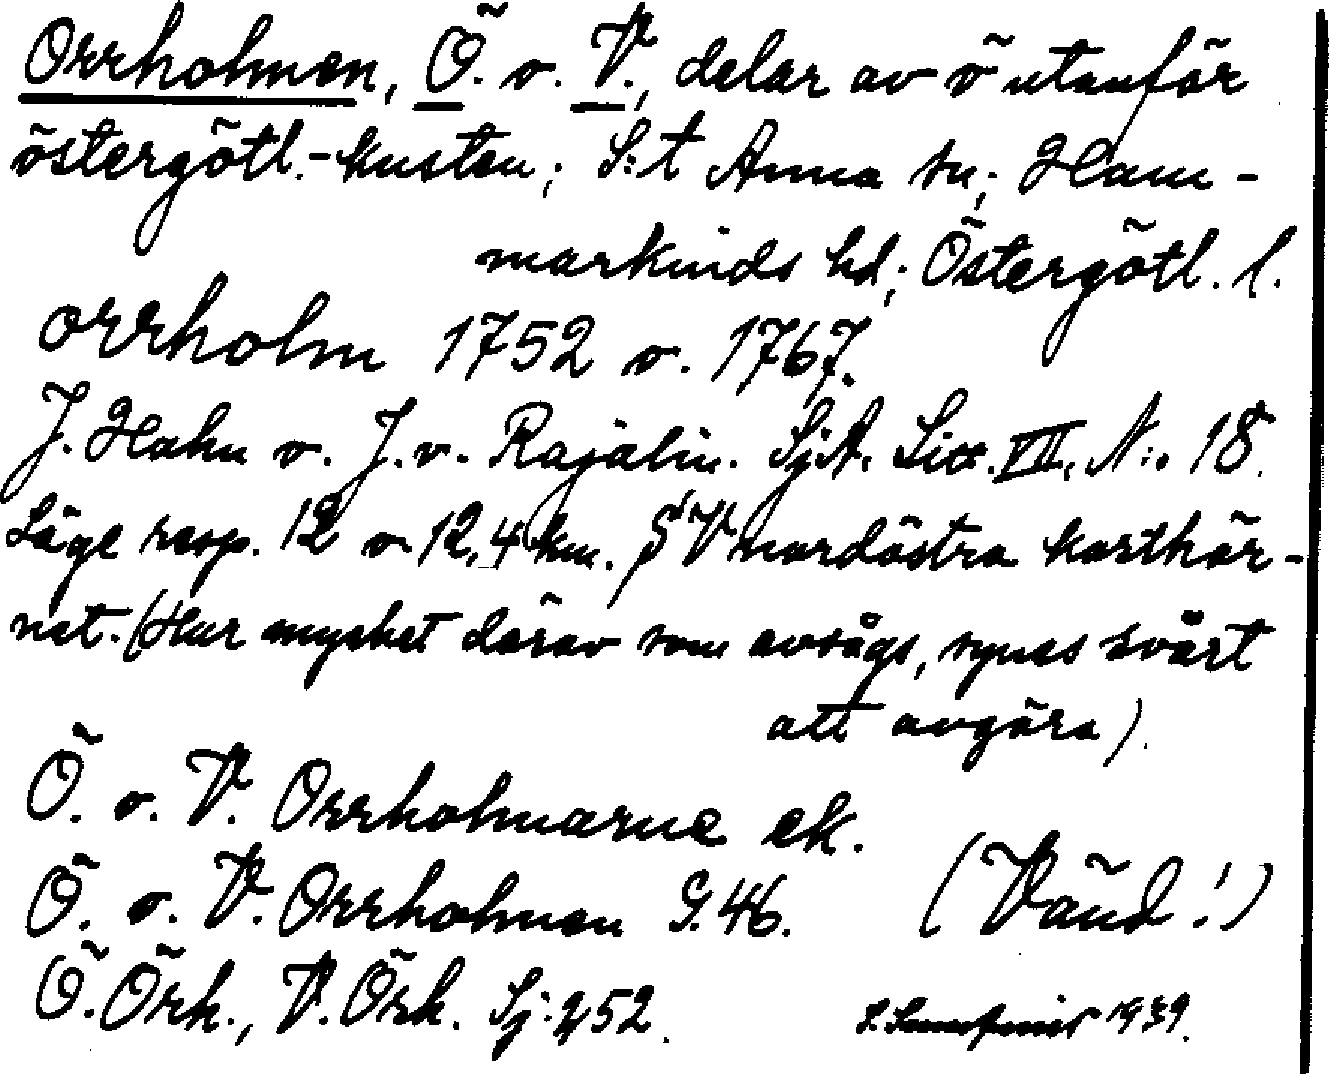 Orrholmen, Ö. o. V., delar av ö utanför
östergötl.-kusten; S:t Anna sn; Ham-
markinds hd; Östergötl. l.
Orrholm 1752 o. 1767.
J. Hahn o. J. v. Rajalin. SjA. Litt. VII, N:o 18.
Läge resp. 12 o 12,4 km. S V nordöstra karthör-
net. (Hur mycket därav som avsågs, synes svårt
att avgöra).
Ö. o. V. Orrholmarne ek.
Ö. o. V. Orrholmen G. 46. (Vänd!)
Ö. Örh., V. Örh. Sj: 252. 1939.